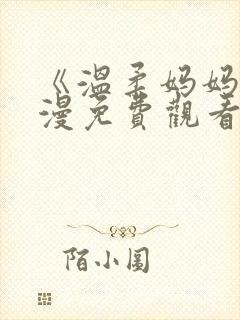 《溫柔妈妈
漫免費觀看
陌小圆